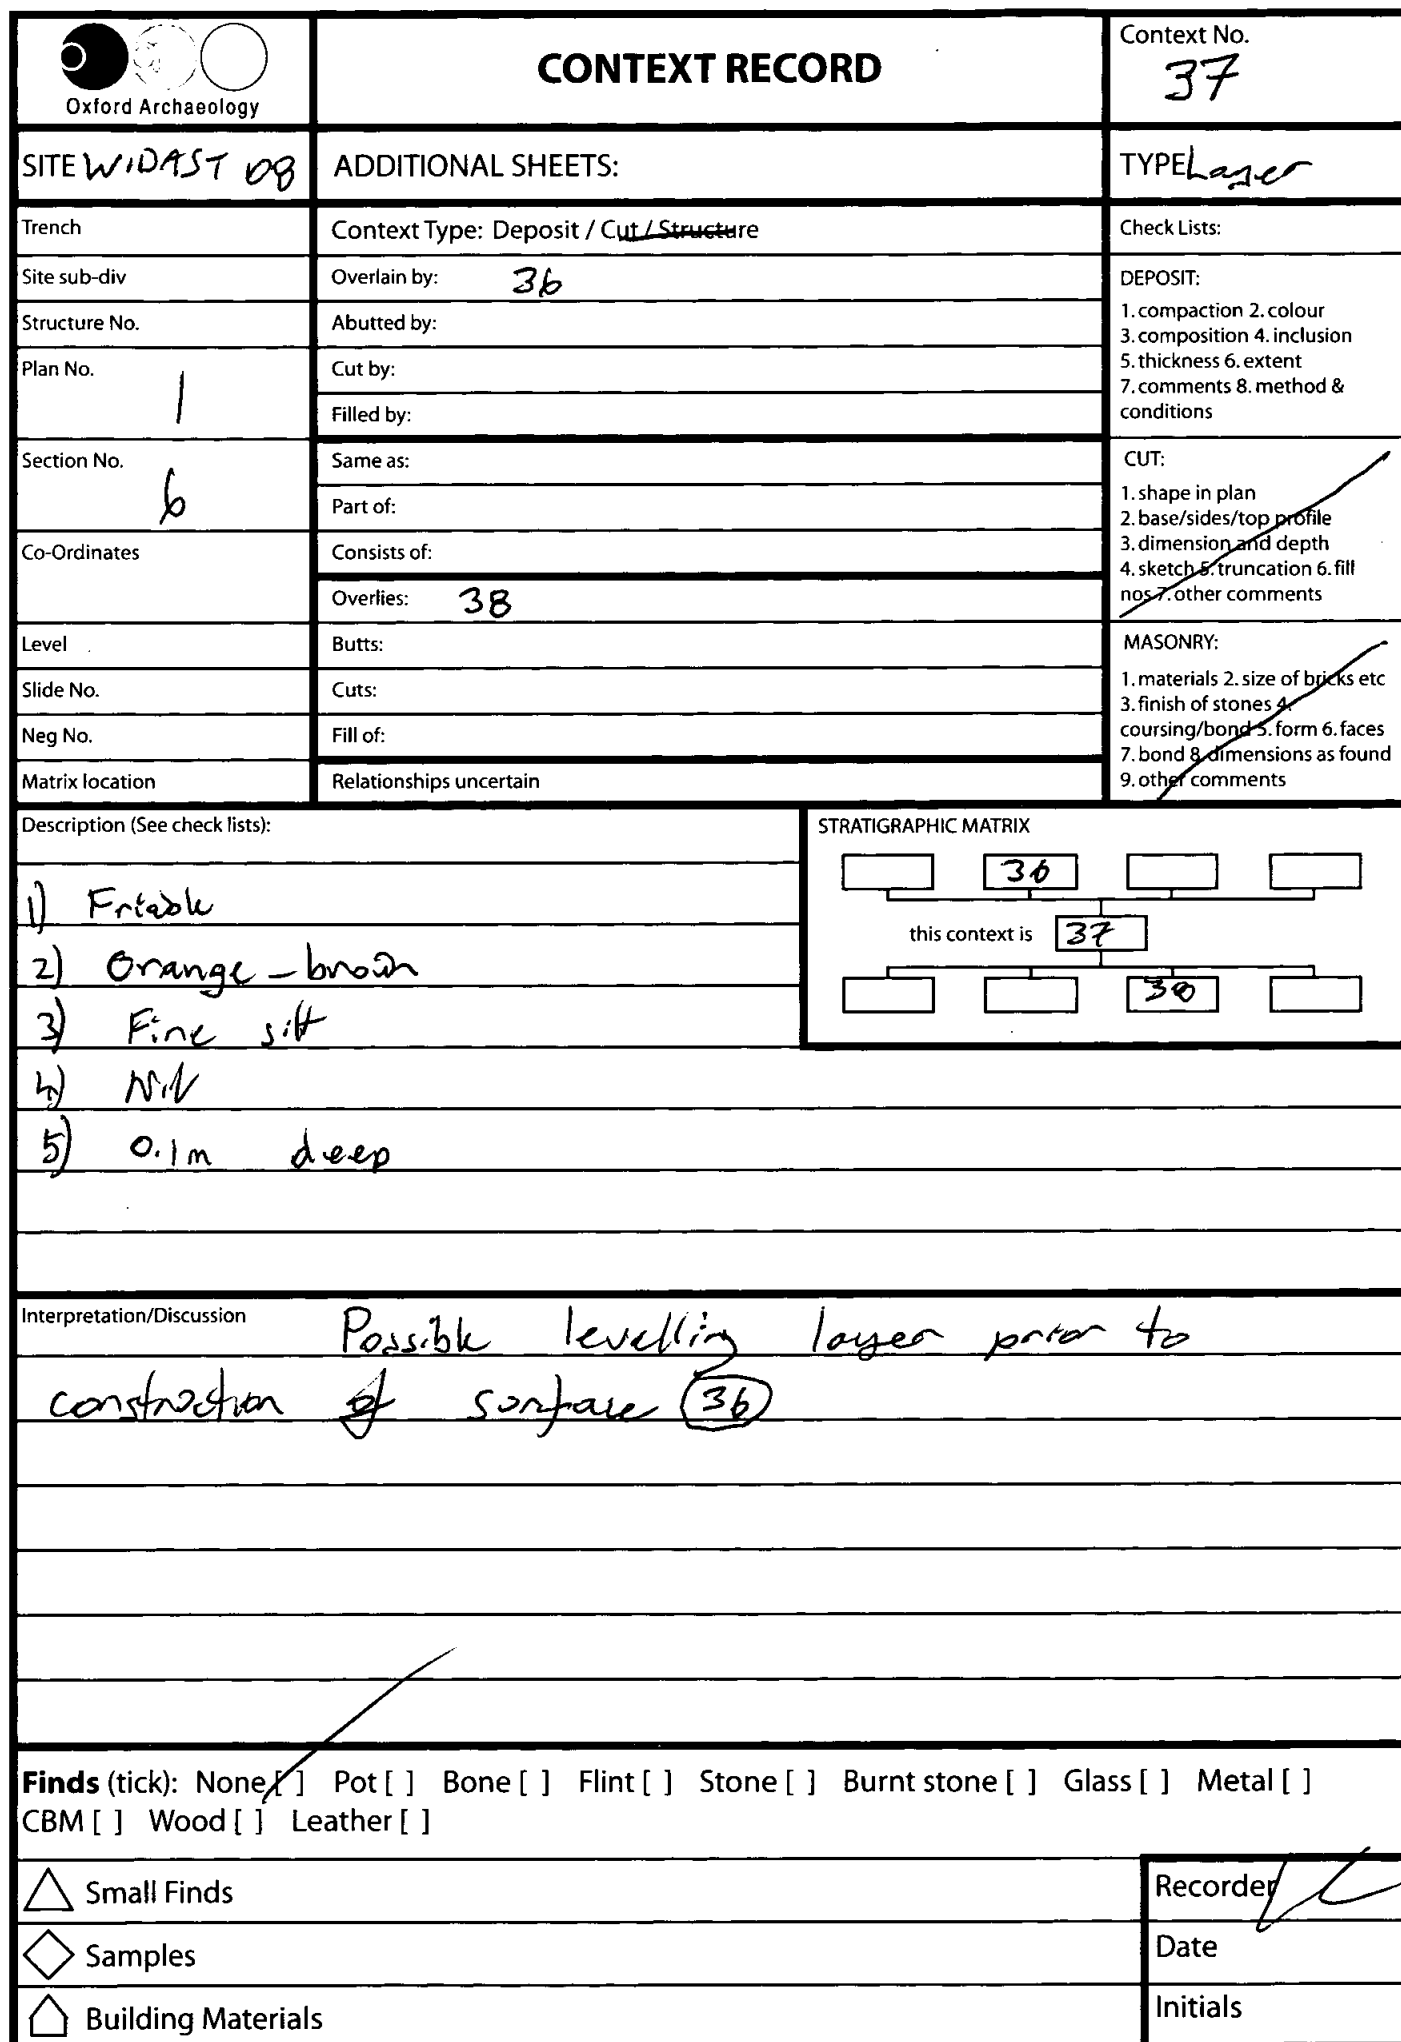 Oxford Archaeology
CONTEXT RECORD
Context No.
37
SITE WIDAST 08
ADDITIONAL SHEETS:
TYPE Layer
Trench
Site sub-div
Structure No.
Plan No.
1
Section No.
6
Co-Ordinates
Level
Slide No.
Neg No.
Matrix location
Context Type: Deposit / Cut / Structure
Overlain by: 36
Abutted by:
Cut by:
Filled by:
Same as:
Part of:
Consists of:
Overlies: 38
Butts:
Cuts:
Fill of:
Relationships uncertain
Check Lists:
DEPOSIT:
1. compaction 2. colour
3. composition 4. inclusion
5. thickness 6. extent
7. comments 8. method &
conditions
CUT:
1. shape in plan
2. base/sides/top profile
3. dimension and depth
4. sketch 5. truncation 6. fill
nos 7. other comments
MASONRY:
1. materials 2. size of bricks etc
3. finish of stones 4.
coursing/bond 5. form 6. faces
7. bond 8. dimensions as found
9. other comments
Description (See check lists):
1) Friable
2) Orange - brown
3) Fine silt
4) Nil
5) 0.1m deep
STRATIGRAPHIC MATRIX
36
this context is 37
38
Interpretation/Discussion Possible levelling layer prior to
construction of surface 36
Finds (tick): None [ ] Pot [ ] Bone [ ] Flint [ ] Stone [ ] Burnt stone [ ] Glass [ ] Metal [ ]
CBM [ ] Wood [ ] Leather [ ]
Small Finds
Samples
Building Materials
Recorder
Date
Initials